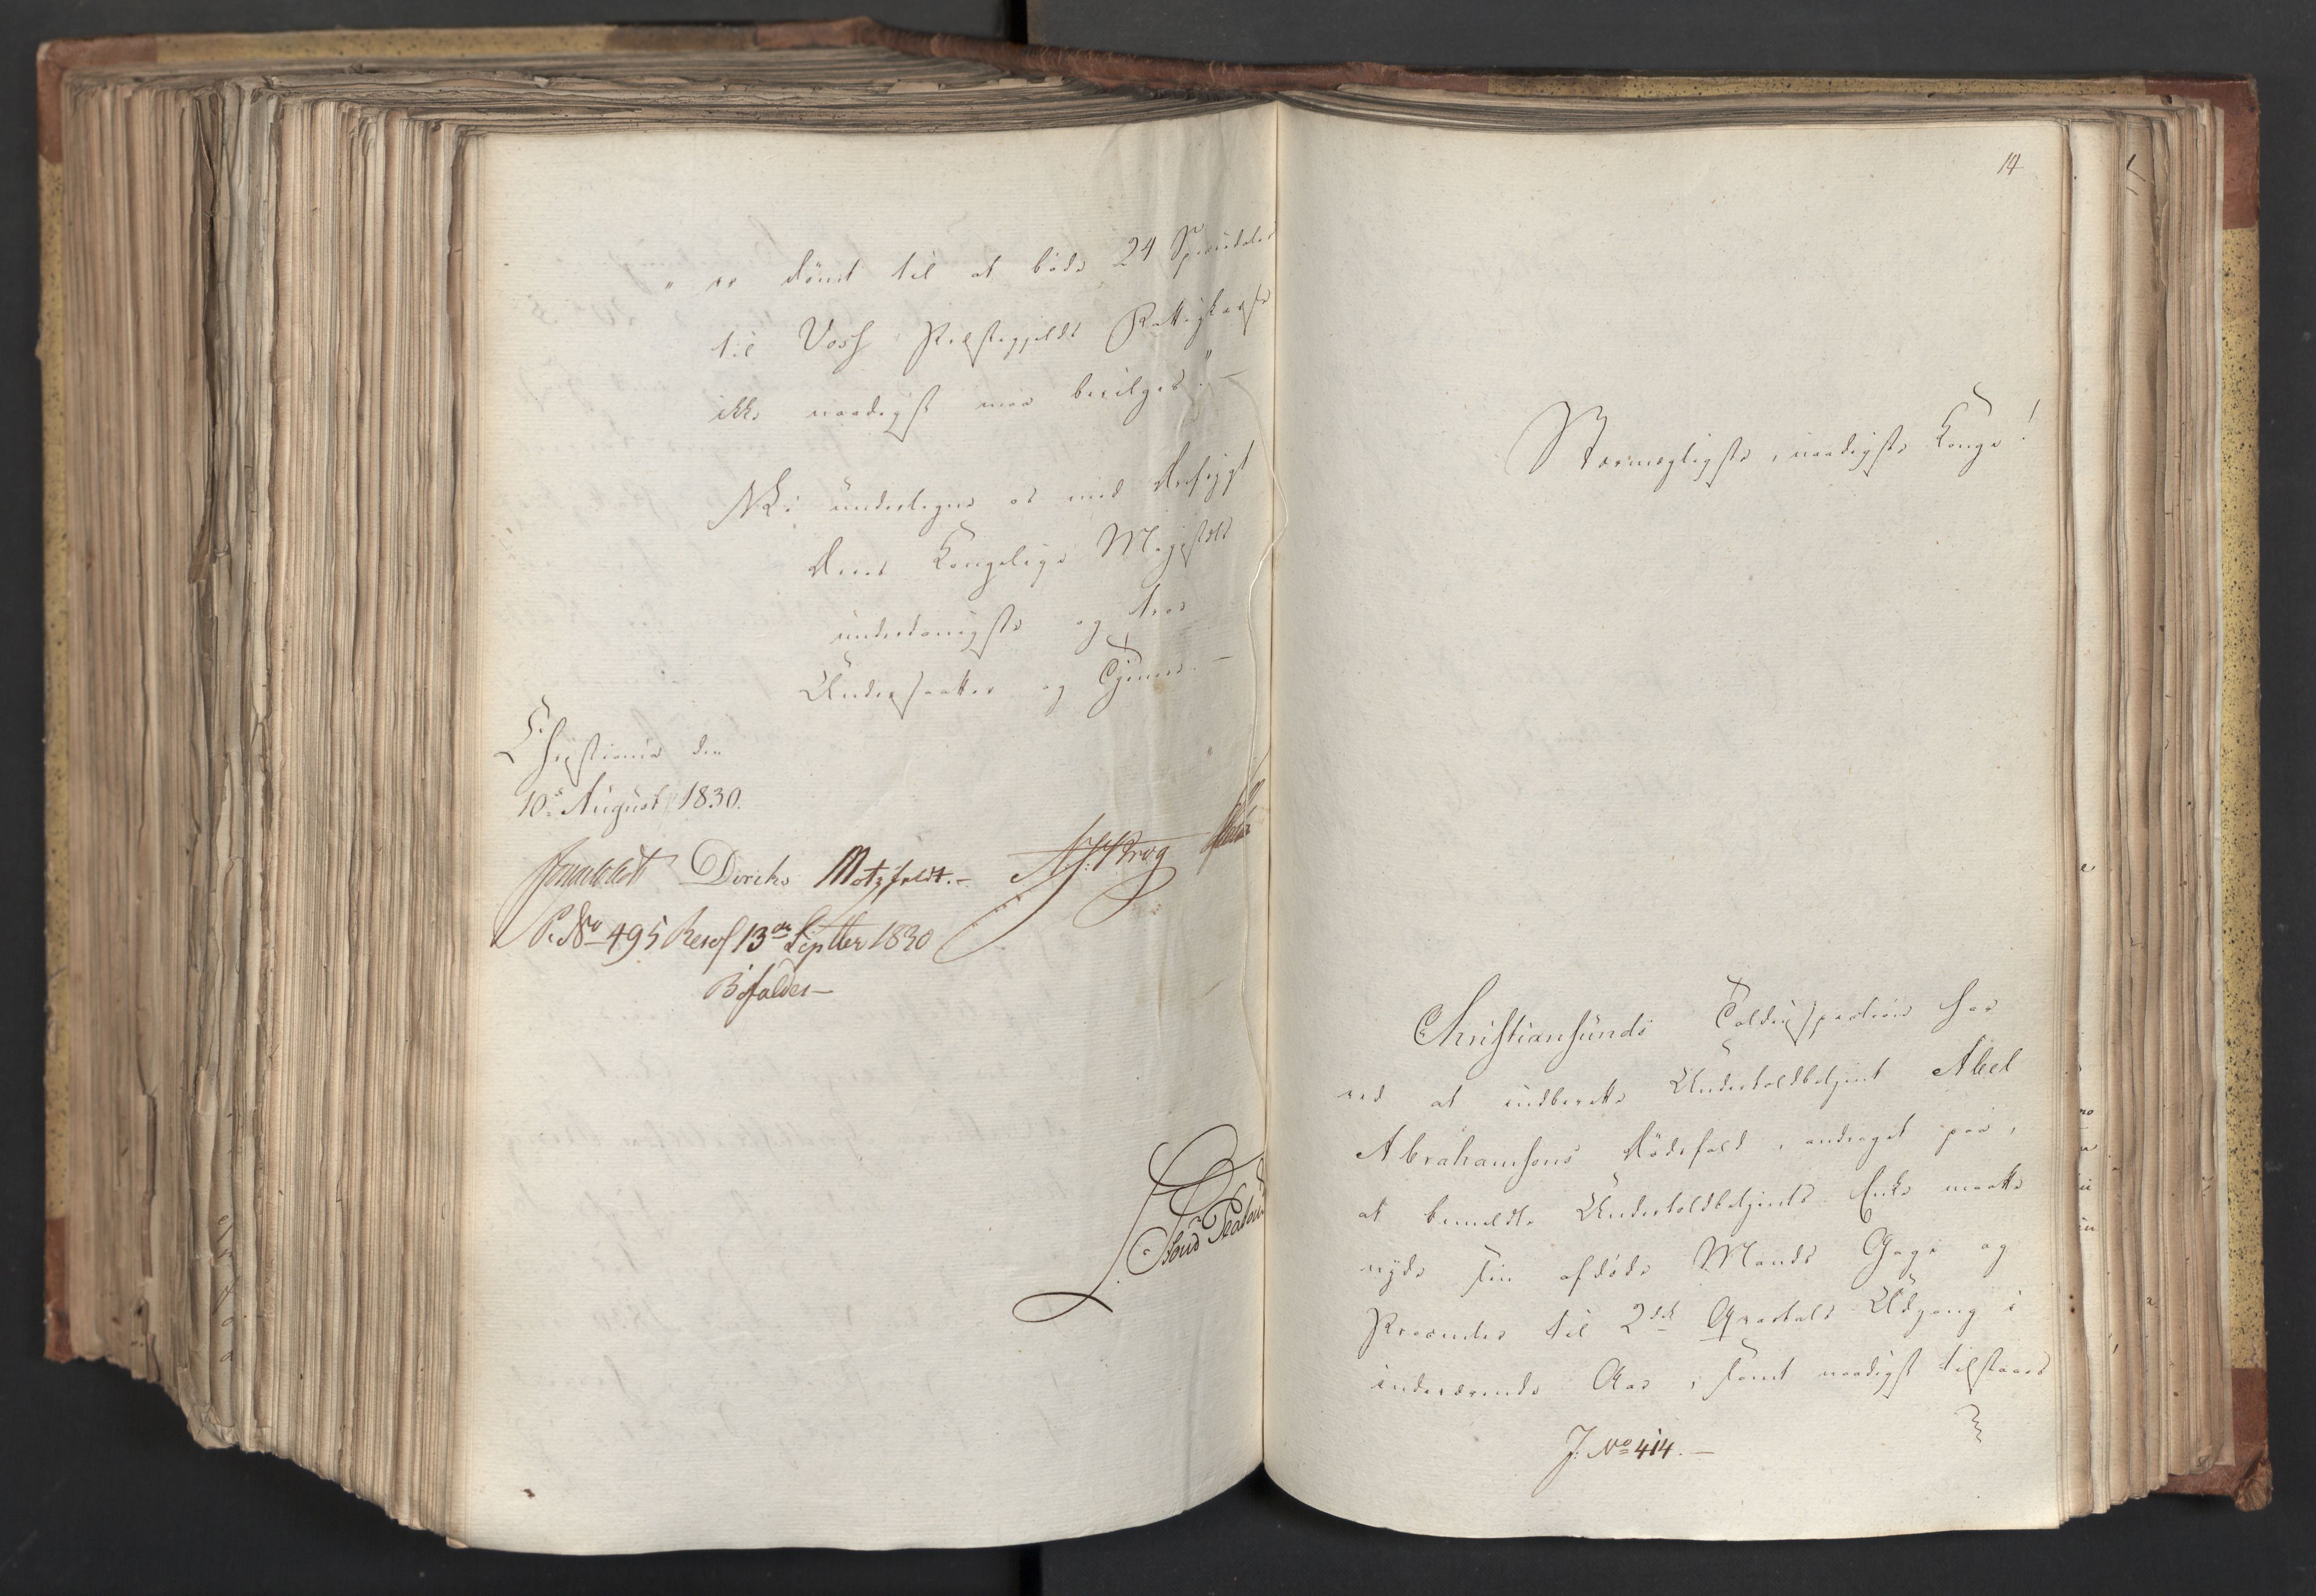 " er dömt til at böde 24 Speciedaler
til Voss Præstegjelds Fattigkasse
ikke naadigst maa bevilges." —
Vi undertegne os med Ærefrygt
Deres Kongelige Majestæts
underdanigste og troe
Undersaatter og Tjenere. —
Christiania den
10de August 1830.
Diriks Motzfeldt. — Krog
P. No 495 Resol 13de Septber 1830
Bifaldes —
14
Stormægtigste, naadigste Konge!
Christiansunds Toldinspection har
ved at indberette Undertoldbetjent Abel
Abrahamsens Dödsfald, andraget paa,
at bemeldte Undertoldbetjents Enke maatte
nyde sin afdöde Mands Gage og
til 2det Qvartals Udgang i
indeværende Aar, samt naadigst tilstaaes
J. No 414. —